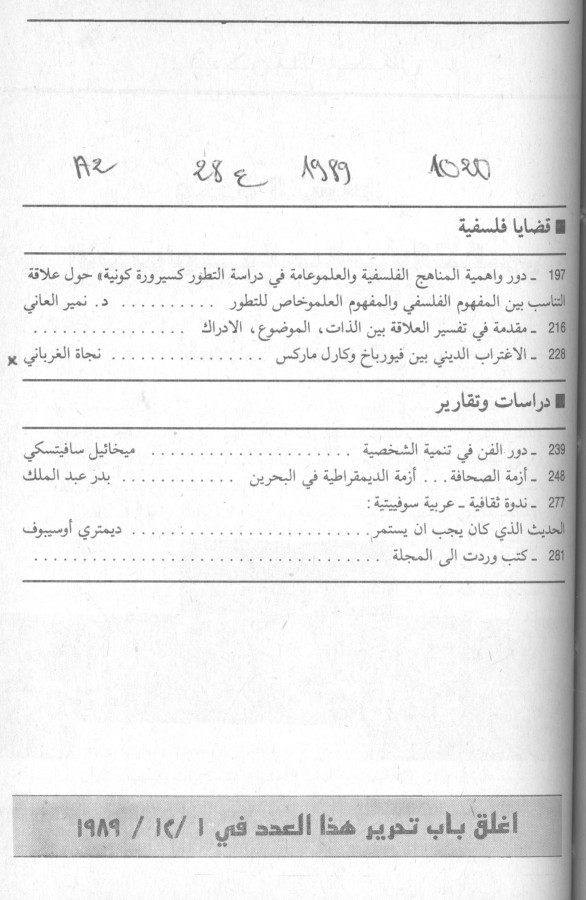 A2 28 ع 1989 1020
■ قضايا فلسفية
197 ـ دور واهمية المناهج الفلسفية والعلموعامة في دراسة التطور كسيرورة كونية» حول علاقة
التناسب بين المفهوم الفلسفي والمفهوم العلموخاص للتطور . . . . . . . . . . د. نمير العاني
216 ـ مقدمة في تفسير العلاقة بين الذات، الموضوع، الادراك . . . . . . . . . . . . . . . .
228 ـ الاغتراب الديني بين فيورباخ وكارل ماركس . . . . . . . . . . . . . . . . نجاة الغرباني x
■ دراسات وتقارير
239 ـ دور الفن في تنمية الشخصية . . . . . . . . . . . . . . . . . . . . ميخائيل سافيتسكي
248 ـ أزمة الصحافة. . . أزمة الديمقراطية في البحرين . . . . . . . . . . . . بدر عبد الملك
277 ـ ندوة ثقافية ـ عربية سوفييتية:
الحديث الذي كان يجب ان يستمر. . . . . . . . . . . . . . . . . . . . . . . . ديمتري أوسيبوف
281 ـ كتب وردت الى المجلة . . . . . . . . . . . . . . . . . . . . . . . . . . . . . . . . . . . .
اغلق باب تحرير هذا العدد في ١ /١٢ / ١٩٨٩